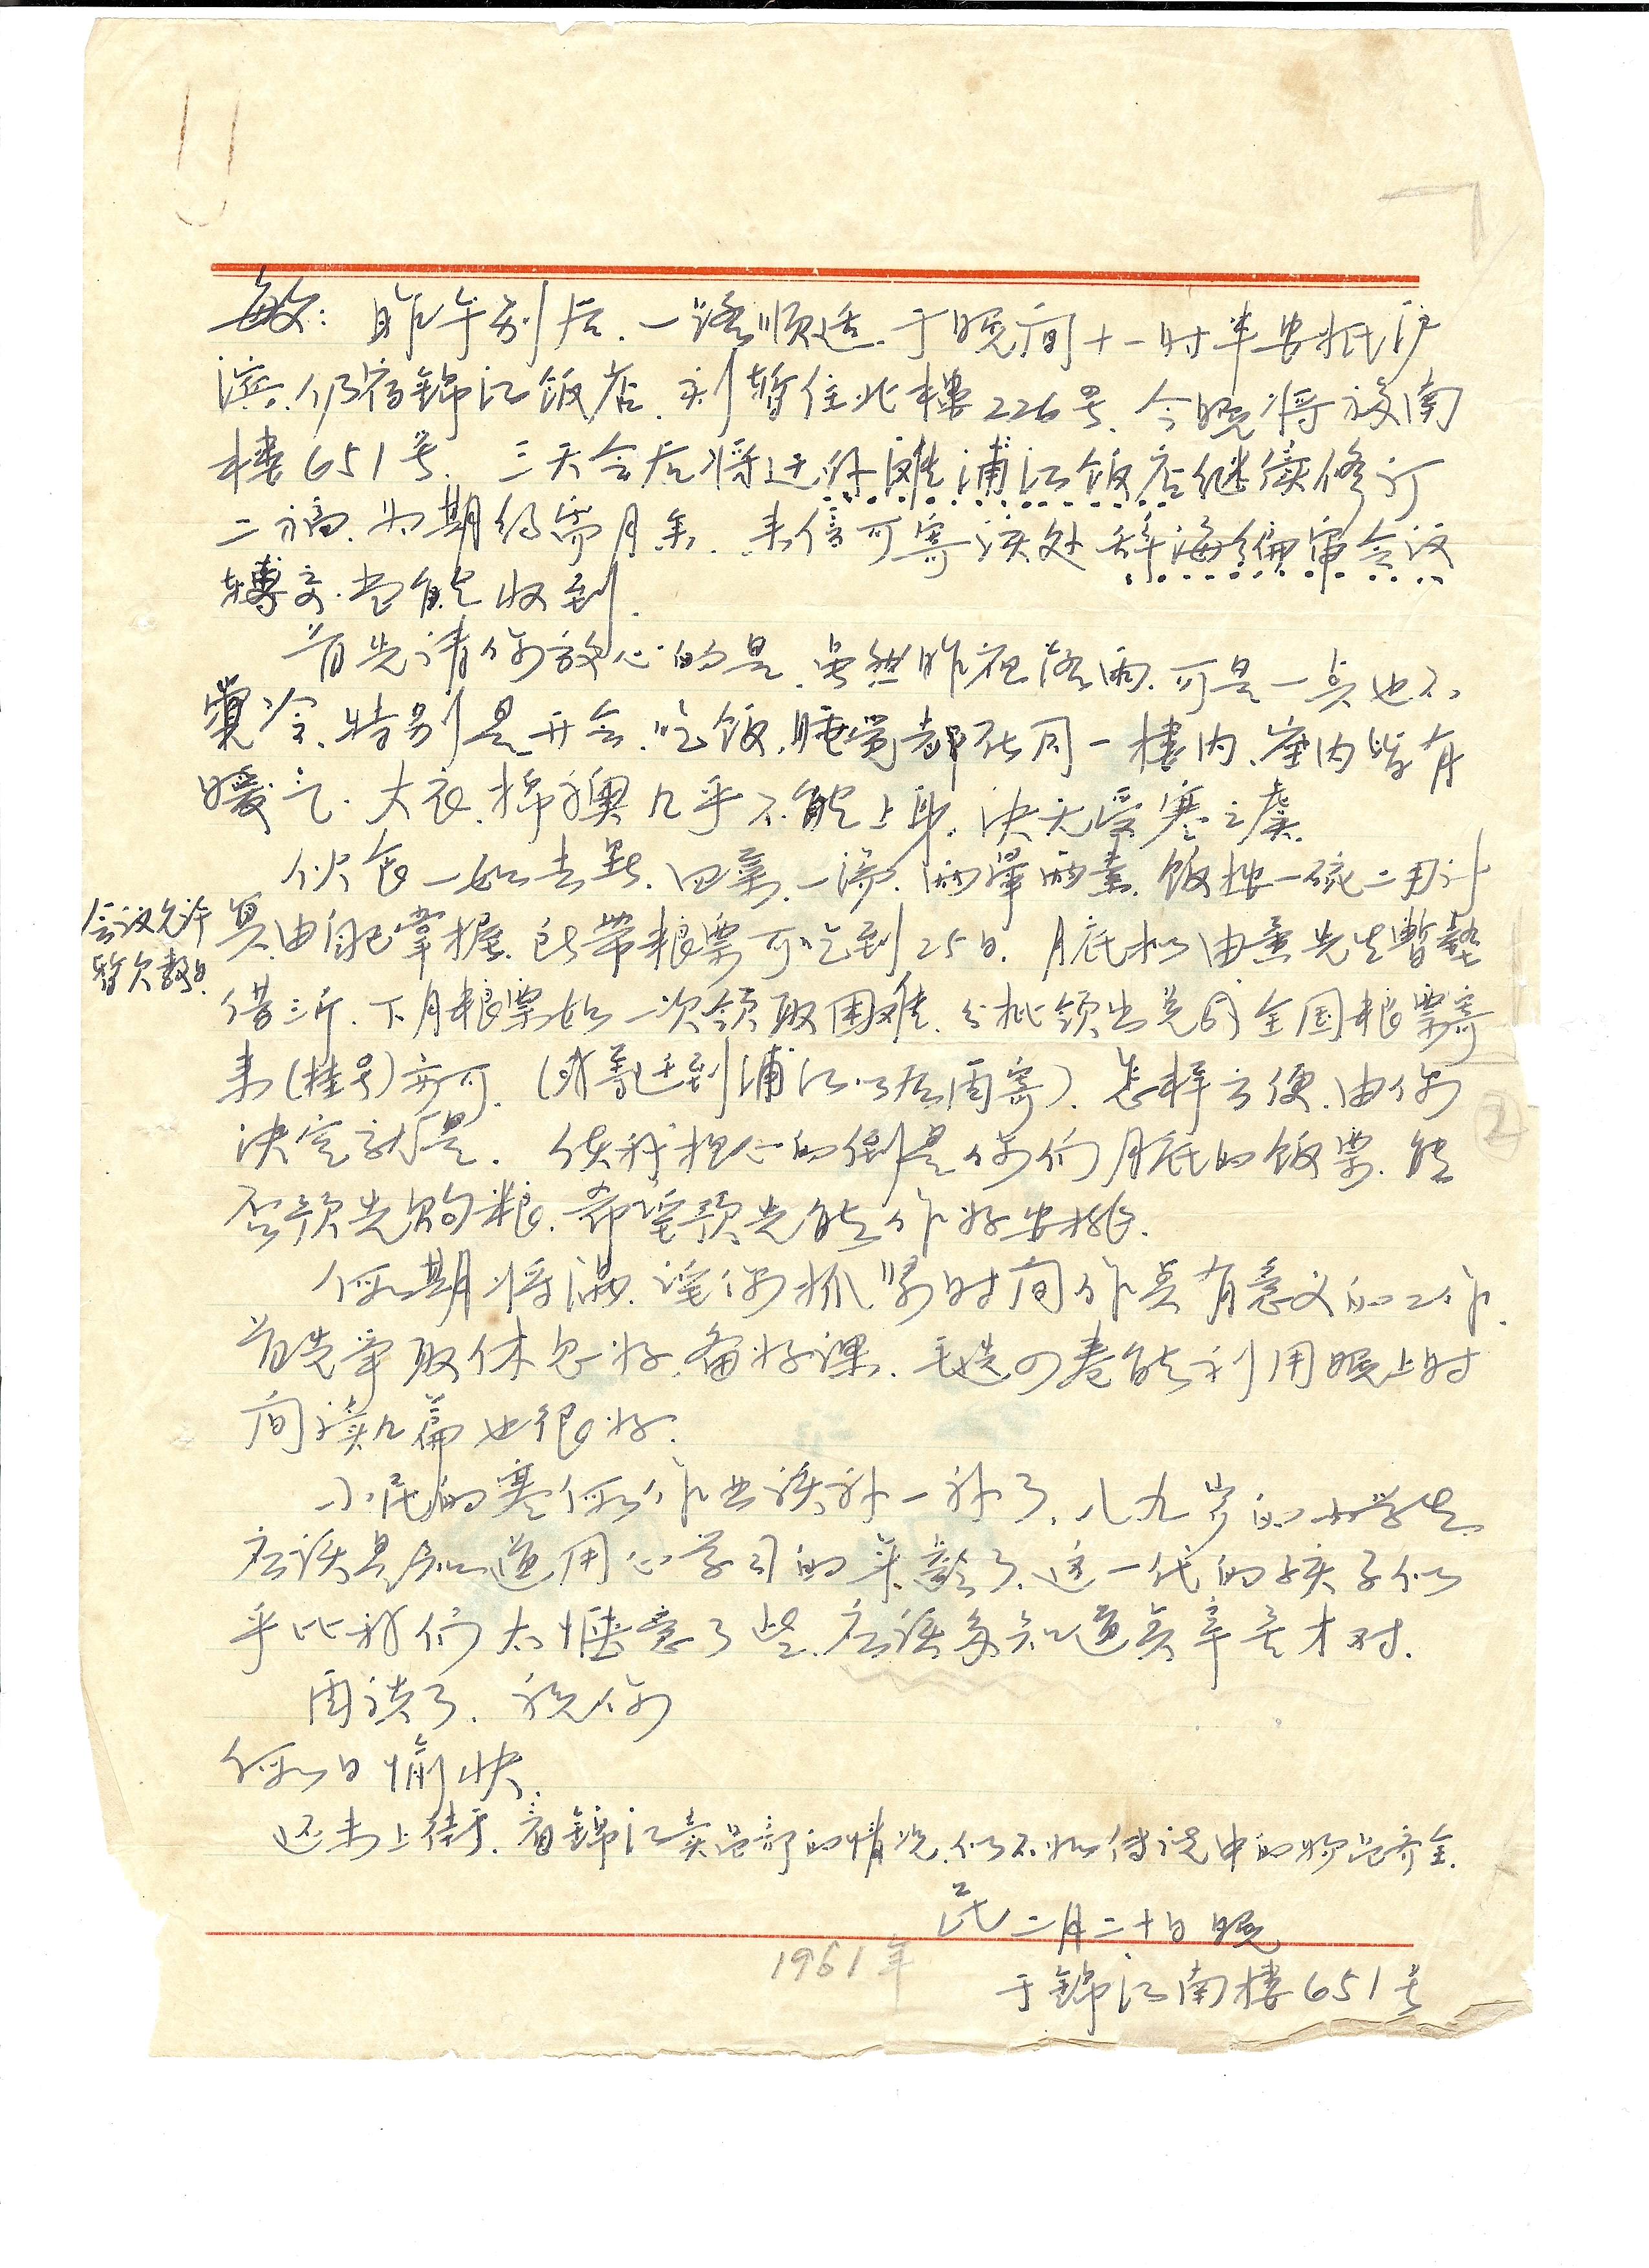 敏：昨午别后、一路顺适、于晚间十一时半安抵沪
滨、仍宿錦江饭店、刻暫住北樓226号、今晚将移南
樓651号、三天会后将迁外滩浦江饭店继续修订
二稿、为期约需月余、来信可寄该处辞海编审会议
轉交、当能收到.
首先请你放心的是、虽然昨夜落雨、可是一点也不
覺冷、特别是开会、吃饭、睡覺都在同一樓内、室内皆有
暖气、大衣、棉袄几乎不能上身、决无受寒之虞.
伙食一如去冬、四菜一湯、两葷两素、饭按一碗二两计
算、由自己掌握、所带粮票可吃到25日、月底拟由 先生暫墊
会议允许
暂欠数日.
借三斤、下月粮票如一次领取困难、分批领出兑成全国粮票寄
来(挂号)亦可、(我等迁到浦江以后再寄)、怎样方便、由你
决定就是. 使我担心的倒是你们月底的饭票、能
否预先购粮、希望预先能作好安排.
假期将满、望你抓紧时间作点有意义的工作、
首先争取休息好、备好课、毛选四卷能利用晚上时
间读几篇也很好.
小民的寒假作业该补一补了、八九岁的小学生
应该是知道用心学习的年龄了、这一代的孩子似
乎比我们太惬意了些、应该多知道点辛苦才对.
再谈了、祝你
假日愉快.
还未上街、看錦江卖品部的情况、似不如传说中的物品齐全.
民 二月二十日晚
1961年
于錦江南樓651号
②